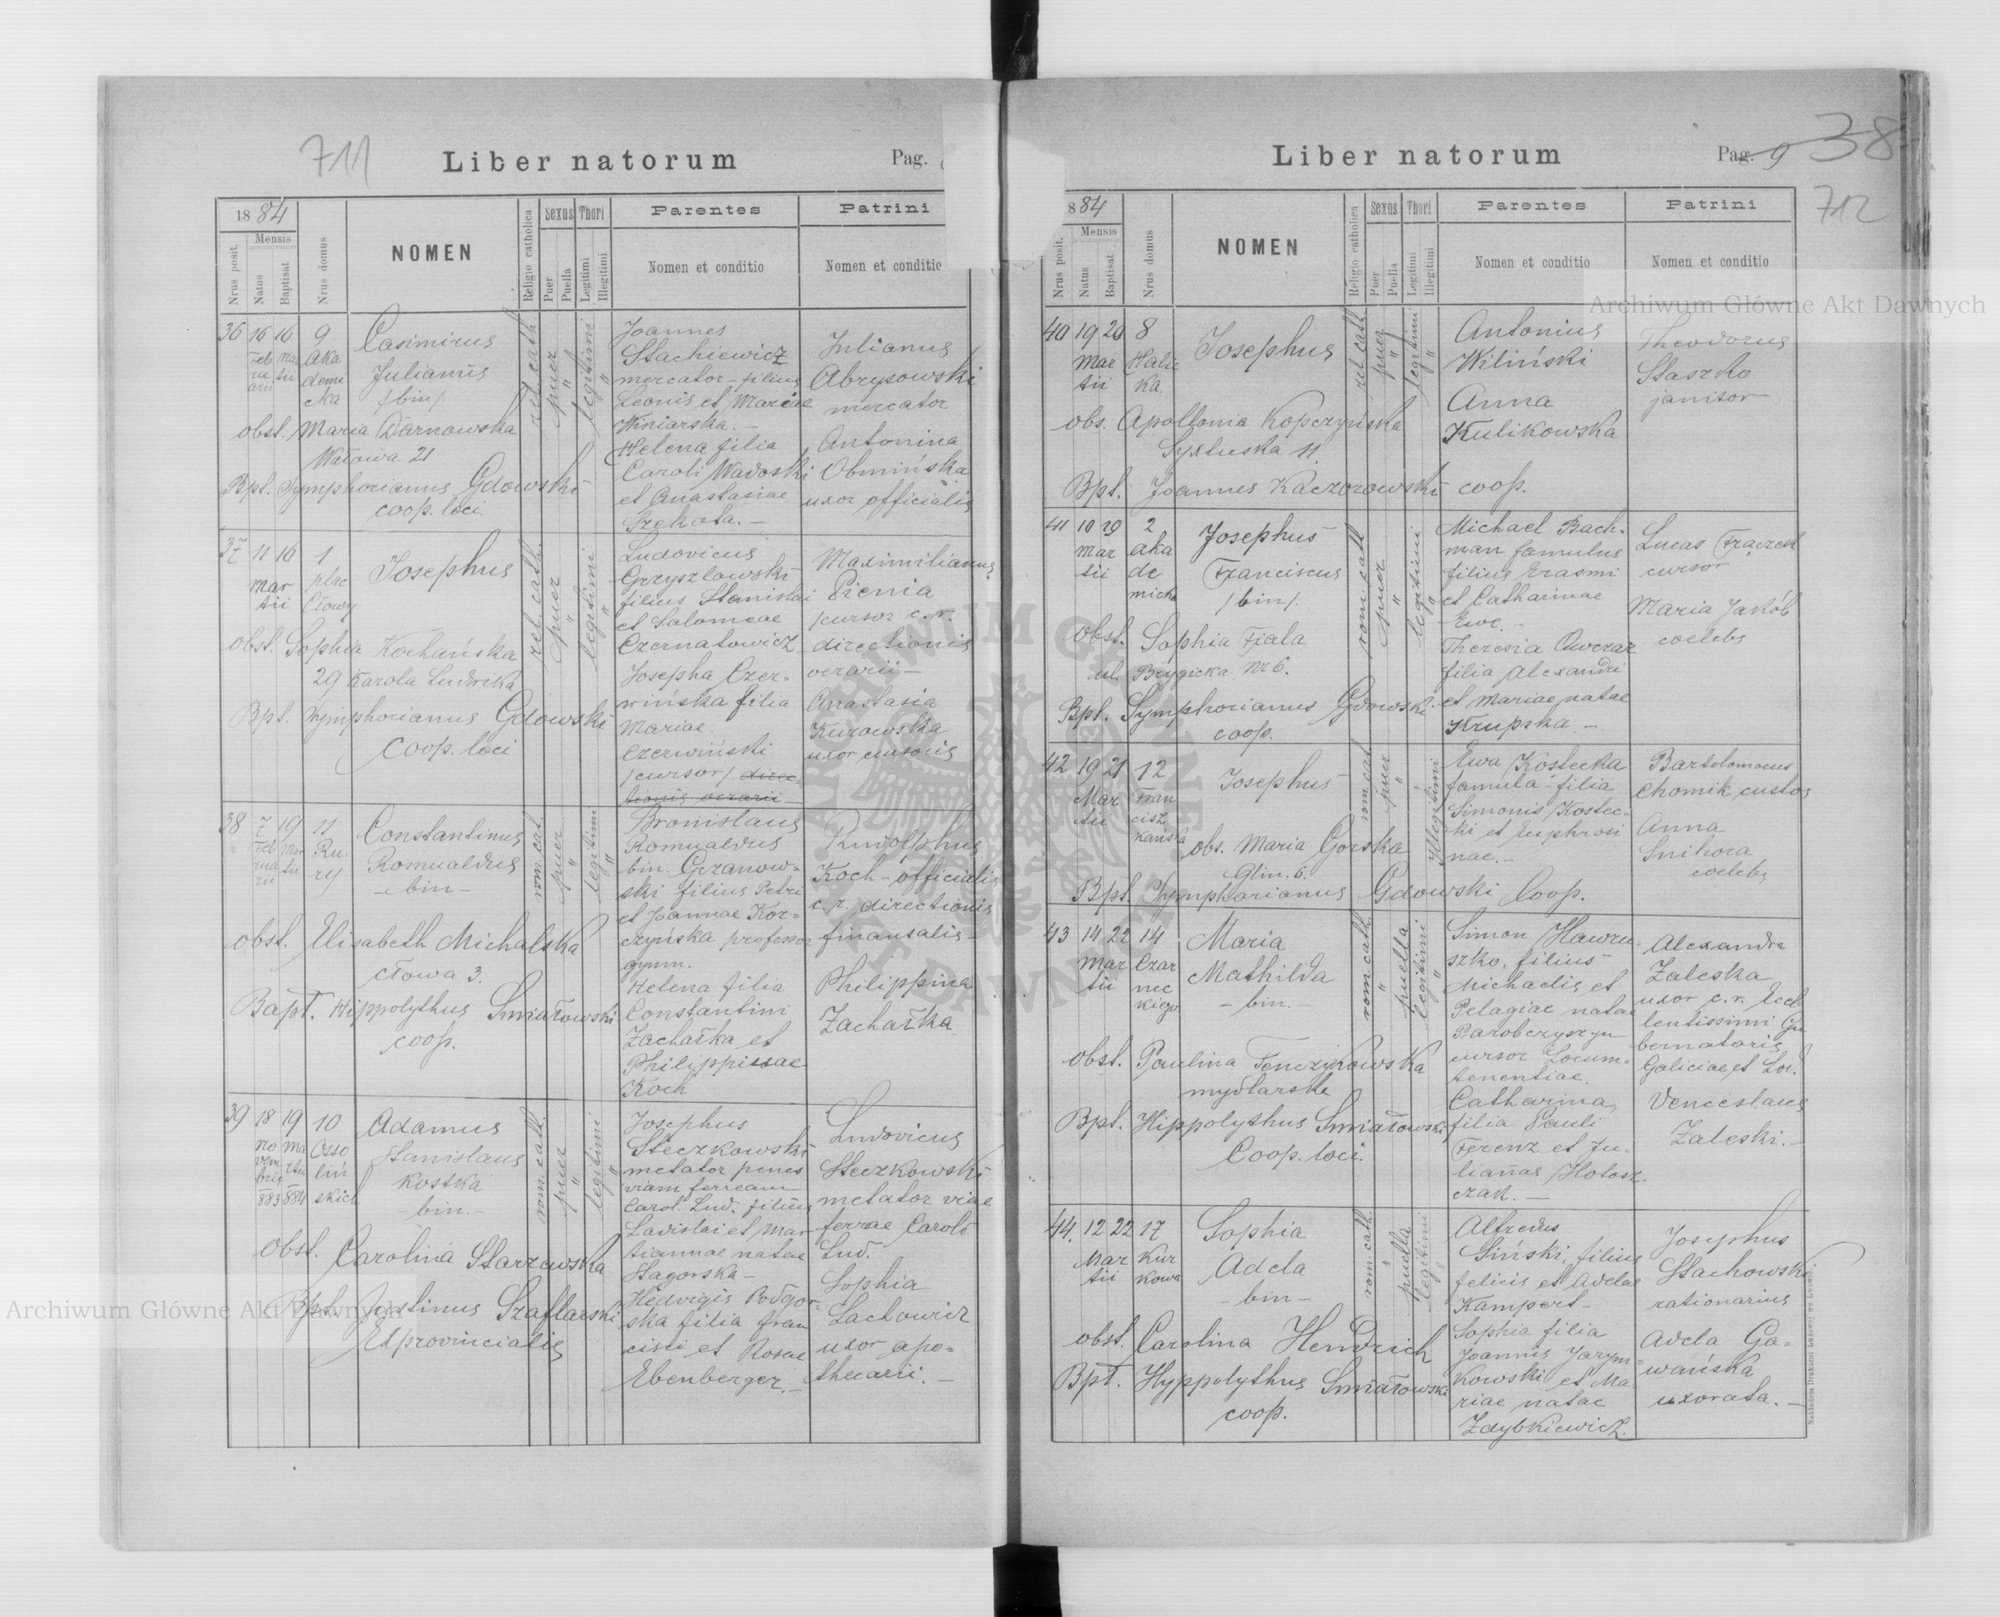 711
Liber natorum
Pag.
1884
Nrus posit.
Mensis
Natus
Baptisat
Nrus domus
NOMEN
Religio catholica
Sexus
Puer
Puella
Thori
Legitimi
Illegitimi
Parentes
Nomen et conditio
Patrini
Nomen et conditio
36 16 16 9
Feb ru arii
Mar tii
Aka demi cka
Casimirus
Julianus
/bin/
rel. cath.
puer "
legitimi "
obst. Maria Darnowska
Wałowa 21
Bpt. Symphorianus Gdowski
coop. loci
Joannes
Stachiewicz
mercator - filius
Leonis et Mariae
Winiarska. -
Helena filia
Caroli Wadoski
et Anastasiae
Szekota. -
Julianus
Abrysowski
mercator
Antonina
Obmińska
uxor officialis
37 11 16 1
Mar tii
plac Cłowy
Josephus
rel. cath.
puer "
legitimi "
obst. Sophia Kochańska
29 Karola Ludwika
Bpt. Symphorianus Gdowski
Coop. loci
Ludovicus
Grzyszlowski
filius Stanislai
et Salomeae
Czernatowicz
Josepha Czer-
wińska filia
Mariae
Czerwiński
/cursor/ direc-
tionis oerarii
Maximilianus
Pienia
/cursor c. r.
directionis
oerarii -
Anastasia
Kurowska
uxor cursoris
38 7 19 11
Feb rua rii
Mar tii
Ru- ry
Constantinus
Romualdus
- bin -
rom. cat.
puer "
legitimi "
obst. Elisabeth Michalska
Cłowa 3.
Bapt. Hippolythus Śmiałowski
coop.
Bronislaus
Romualdus
bin. Grzanow-
ski filius Petri
et Joannae Kor-
czyńska professor
gymn.
Helena filia
Constantini
Zachařka et
Philippinae
Koch
Rudolphus
Koch - officialis
c. r. directionis
finansalis
Philippina
Zachařka
39 18 19 10
No vem bris 883
Ma rtii 884
Osso liń skich
Adamus
Stanislaus
Kostka
- bin. -
rom. cath.
puer "
legitimi "
obst. Carolina Starzewska
Bpt. Justinus Szaflarski
Exprovincialis
Josephus
Steczkowski
metator penes
viam ferream
Carol. Lud. filius
Ladislai et Mar-
tiannae natae
Stagorska -
Hedvigis Podgor-
ska filia Fran
cisci et Rosae
Ebenberger. -
Ludovicus
Steczkowski
metator viae
ferrae Caroli
Lud.
Sophia
Lachowicz
uxor apo-
thecarii. -
Liber natorum
Pag. 9
38
712
1884
Nrus posit.
Mensis
Natus
Baptisat
Nrus domus
NOMEN
Religio catholica
Sexus
Puer
Puella
Thori
Legitimi
Illegitimi
Parentes
Nomen et conditio
Patrini
Nomen et conditio
40 19 20 8
Mar tii
Halic ka
Josephus
rel. cath
puer "
legitimi "
obs. Apollonia Kopczyńska
Syxtuska 11.
Bpt. Joannes Kaczorowski coop.
Antonius
Wiliński
Anna
Kulikowska
Theodorus
Staszko
janitor
41 10 19 2
Mar tii
aka de micka
Josephus
Franciscus
/bin/.
rom. cath
puer "
legitimi "
obst. Sophia Fiala
ul. Brygicka Nr 6.
Bpt. Symphorianus Gdowski
coop.
Michael Bach-
man famulus
filius Erasmi
et Catharinae
Ewe. -
Theresia Owczar
filia Alexandri
et Mariae natae
Krupska. -
Lucas Frączek
cursor
Maria Jakób
coelebs
42 19 21 12
Mar tii
Fran cisz kańska
Josephus
rom. cat
puer "
Illegitimi
obs. Maria Gorska
Glin. 6.
Bpt. Symphorianus Gdowski Coop.
Ewa Kostecka
famula - filia
Simonis Kostec-
ki et Euphrosi
nae. -
Bartolomaeus
Chomik custos
Anna
Snihora
coelebs
43 14 22 14
Mar tii
Czar nec kiego
Maria
Mathilda
- bin. -
rom. cath.
puella "
legitimi "
obst. Paulina Tenczykowska
mydlarska
Bpt. Hippolythus Śmiałowski
Coop. loci.
Simon Hawru-
szko, filius
Michaelis et
Pelagiae natae
Paroberyszyn
cursor Locum-
tenentiae.
Catharina,
filia Pauli
Ferenz et Ju-
lianas Holosz-
czak. -
Alexandra
Zaleska
uxor c. r. Exel
lentissimi Gu
bernatoris
Galiciae et Lod.
Venceslaus
Zaleski. -
44. 12 22 17
Mar tii
Kur kowa
Sophia
Adela
- bin -
rom. cath.
puella "
legitimi "
obst. Carolina Hendrich
Bpt. Hyppolythus Śmiałowski
coop.
Alfredus
Siński, filius
felicis et Adelae
Kampert -
Sophia filia
Joannis Jarym-
kowski et Ma-
riae natae
Zdybkiewicz.
Josephus
Stachowski
rationarius
Adela Ga-
wańska
uxorata. -
Archiwum Główne Akt Dawnych
Archiwum Główne Akt Dawnych
ARCHIWUM GŁÓWNE AKT DAWNYCH